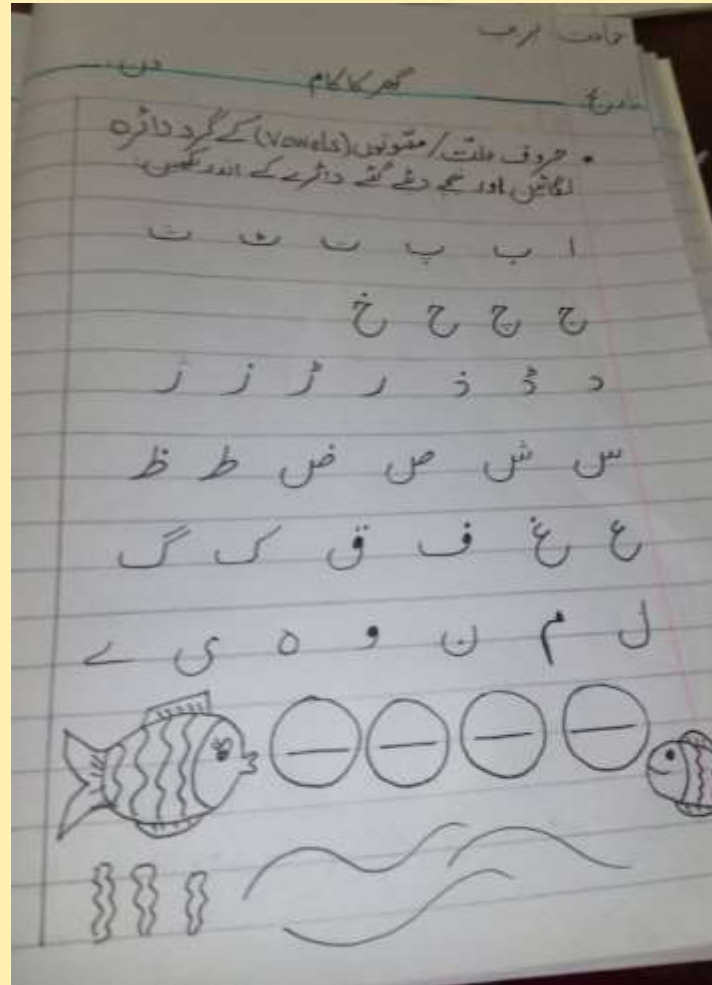 جماعت پریپ
تاریخ گھر کا کام دن
• حروف علت / مصوتوں (Vowels) کے گرد دائرہ
لگائیں اور نیچے دئے گئے دائرے کے اندر لکھیں:
ا ب پ ت ٹ ث
ج چ ح خ
د ڈ ذ ر ڑ ز ژ
س ش ص ض ط ظ
ع غ ف ق ک گ
ل م ن و ہ ی ے